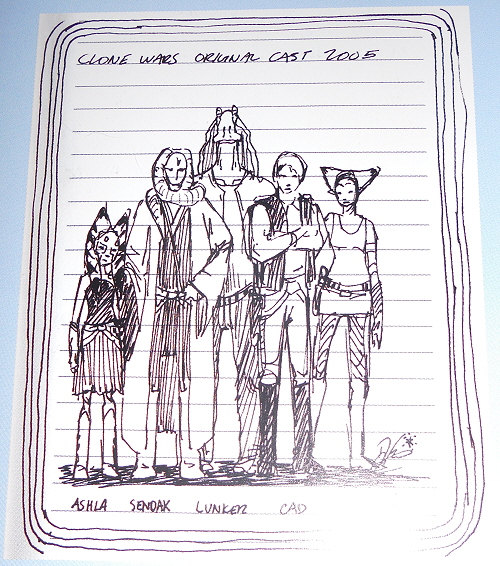 CLONE WARS ORIGNAL CAST 2005
ASHLA SENDAK LUNKER CAD